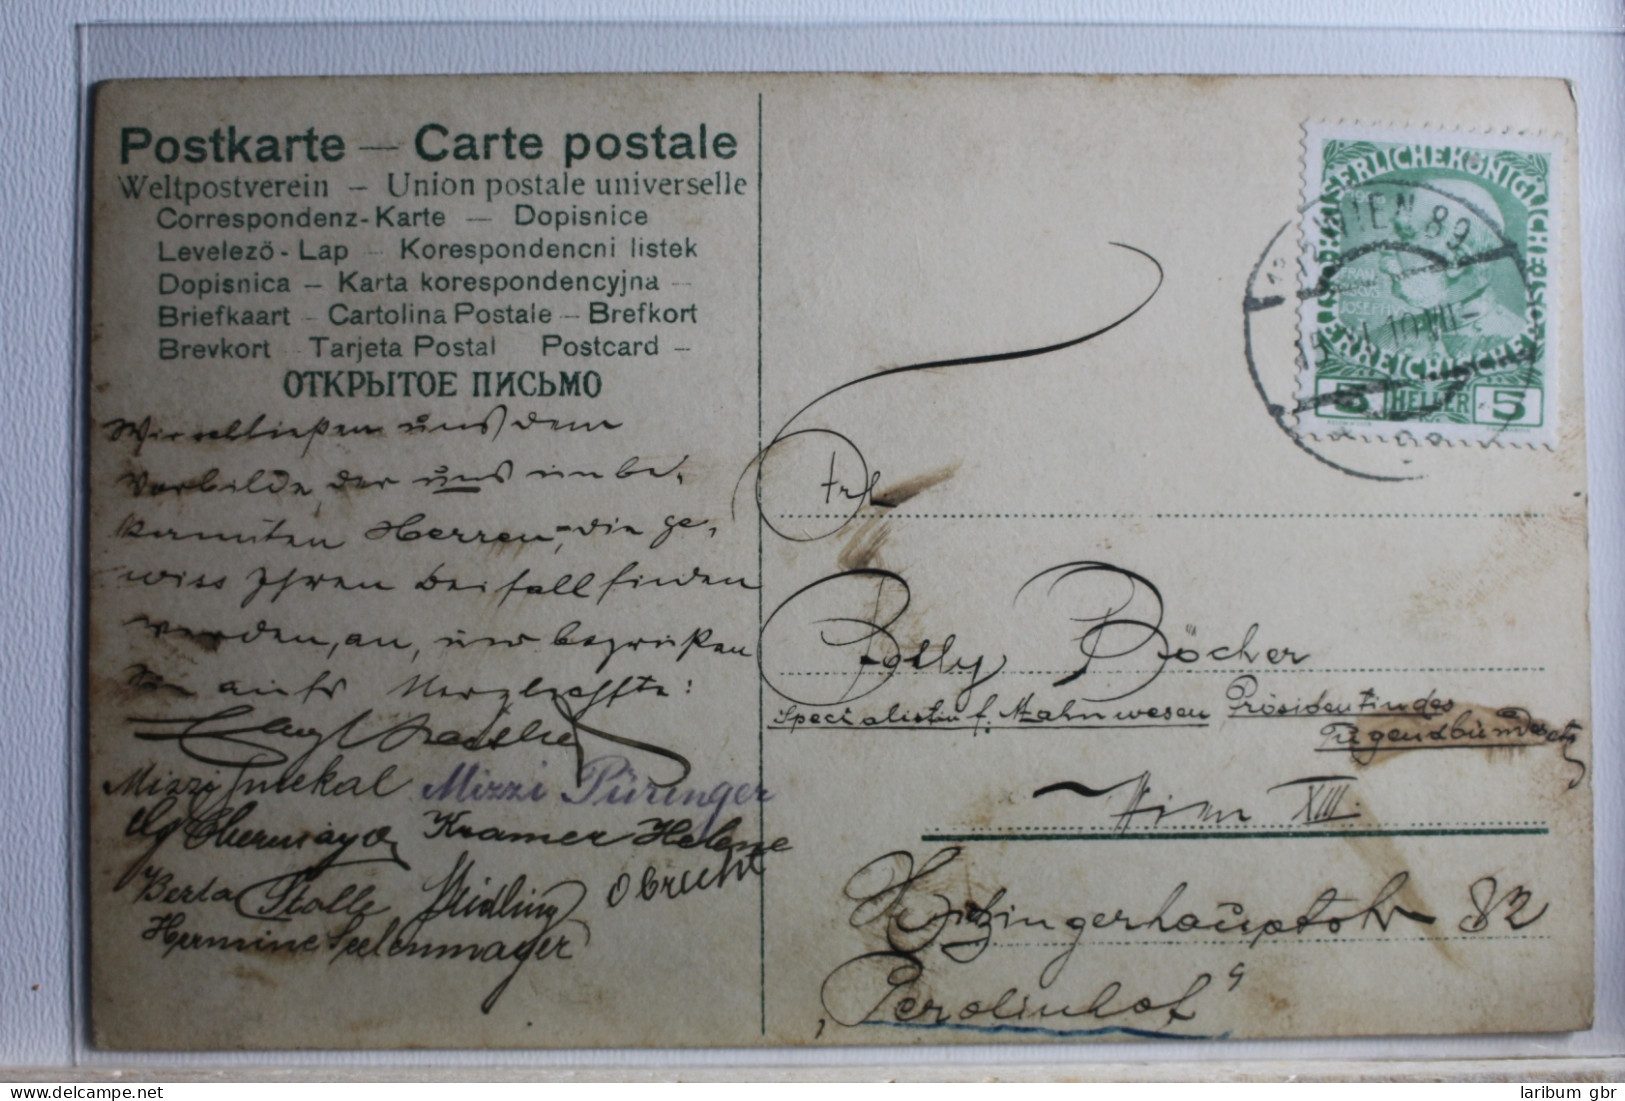 Postkarte — Carte postale
Weltpostverein — Union postale universelle
Correspondenz-Karte — Dopisnice
Levelező-Lap — Korespondencni listek
Dopisnica — Karta korespondencyjna —
Briefkaart — Cartolina Postale — Brefkort
Brevkort — Tarjeta Postal Postcard —
ОТКРЫТОЕ ПИСЬМО
Wir schließen uns dem
Vorbilde der uns unbe-
kannten Herren, die ge-
wiss Ihren Beifall finden
werden, an, und begrüßen
Sie aufs Herzlichste:
Mizzi
Mizzi Püringer
Obermayer Kramer Helene
Berta Stolle Obrecht
Hermine Seelenmayer
KAISERLICHE KÖNIGLICHE ÖSTERREICHISCHE POST
FRANZ JOSEPH
5 HELLER 5
WIEN 89
Frl.
Polly Böcher
Specialistin f. Mahnwesen Präsidentin des
Jugendbundes etc
Wien XIII.
Hietzingerhauptstr 82
„Perolinhof“
laribum gbr